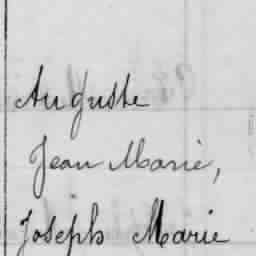 Auguste
Jean Marie,
Joseph Marie